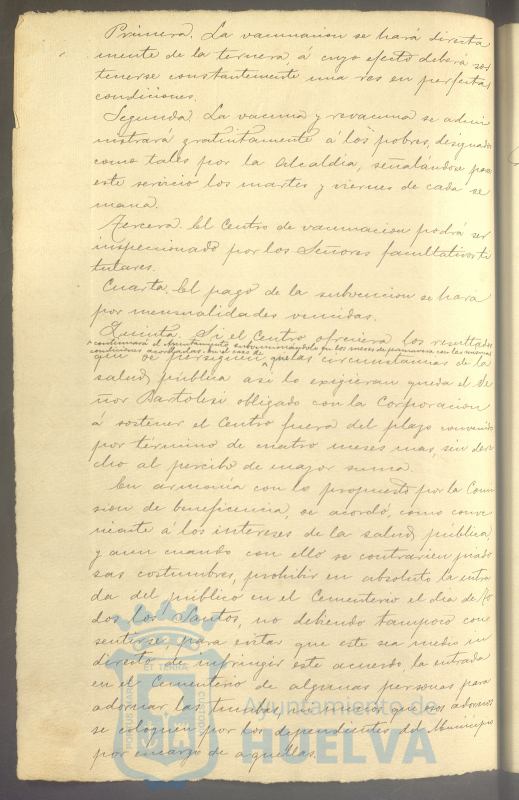 Primera. La vacunacion se hará directa
mente de la ternera á cuyo efecto deberá sos
tenerse constantemente una res en perfectas
condiciones.
Segunda. La vacuna y revacuna se admi
nistrará gratuitamente á los pobres, designados
como tales por la Alcaldia, señalándose para
este servicio los martes y viernes de cada se
mana.
Tercera. El Centro de vacunacion podrá ser
inspeccionado por los Señores facultativos ti
tulares.
Cuarta. El pago de la subvencion se hará
por mensualidades vencidas.
Quinta. Si el Centro ofreciera los resultados
que se persiguen, continuará el Ayuntamiento subvencionándolo en los meses de primavera con las mismas
condiciones acordadas. En el caso de que las circunstancias de la
salud pública asi lo exigieran queda el Se
ñor Bartolesi obligado con la Corporacion
á sostener el Centro fuera del plazo convenido
por término de cuatro meses mas, sin dere
cho al percibo de mayor suma.
En armonía con lo propuesto por la Comi
sion de beneficencia, se acordó, como conve
niente á los intereses de la salud pública
y aun cuando con ello se contrarien piado
sas costumbres, prohibir en absoluto la entra
da del público en el Cementerio el dia de To
dos los Santos, no debiendo tampoco con
sentirse, para evitar que este sea medio in
directo de infringir este acuerdo la entrada
en el Cementerio de algunas personas para
adornar las tumbas, que esos adornos
se coloquen por los dependientes del Municipio
por encargo de aquellas.
Ayuntamiento de
HUELVA
PORTUS MARIS
ET TERRE
CUSTODIA